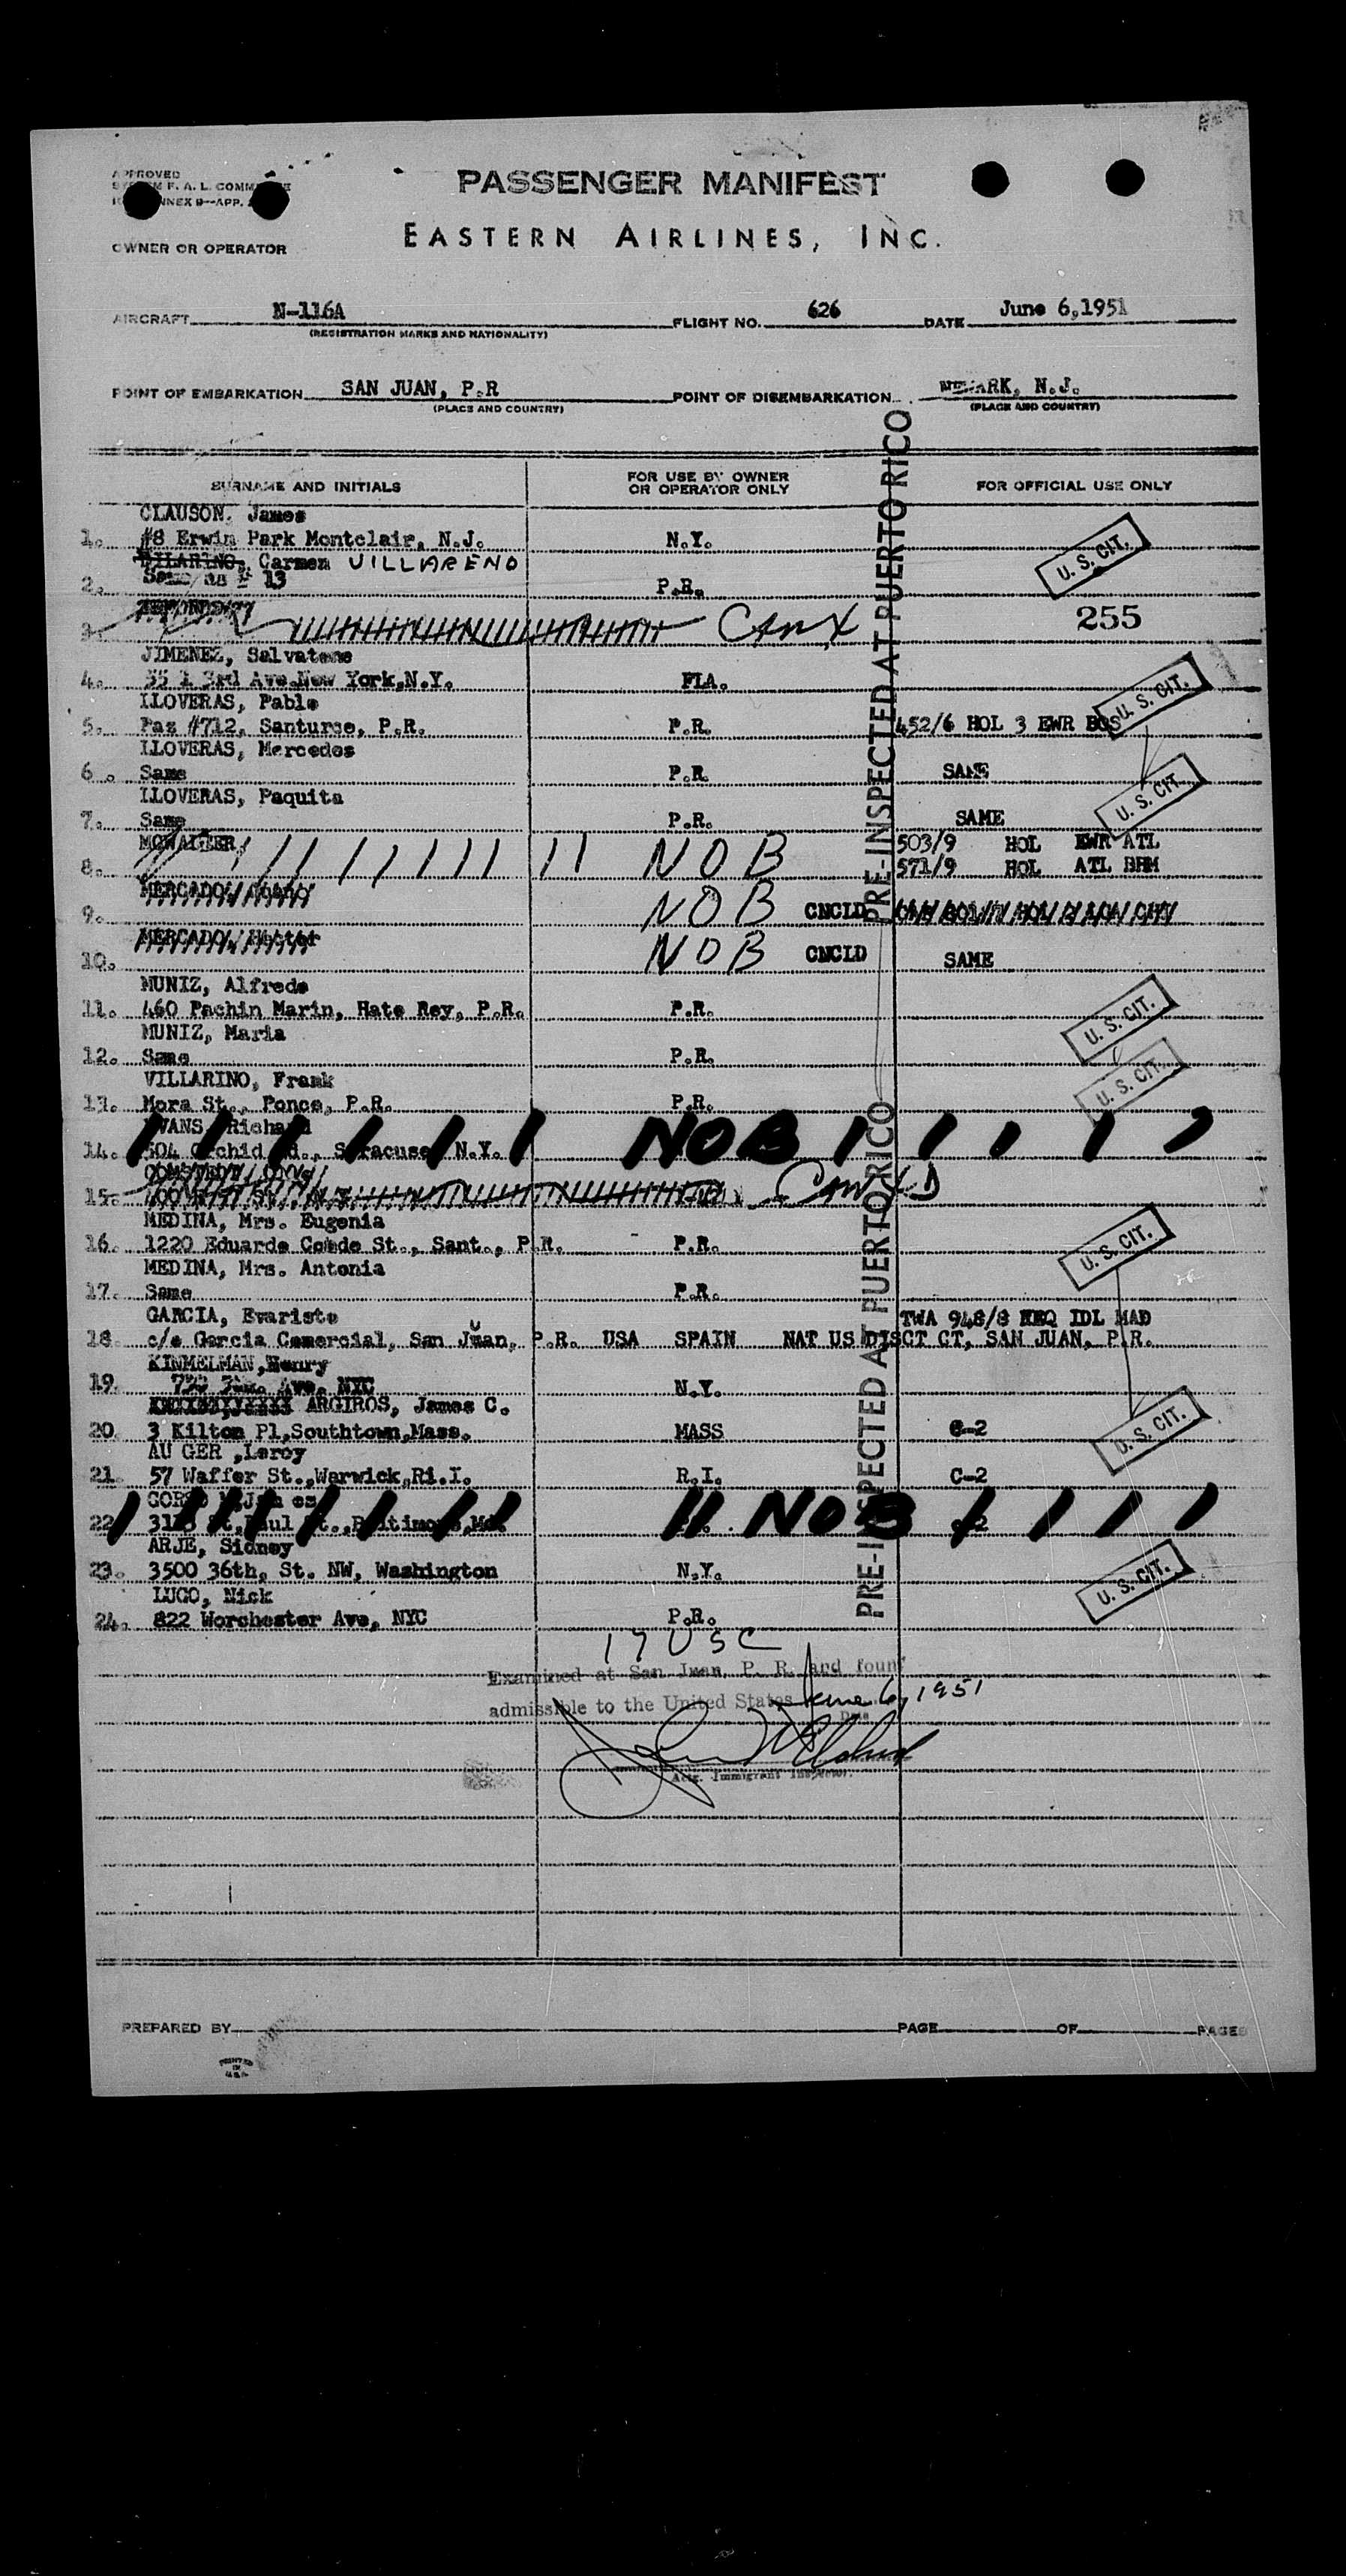 APPROVED
F. A. L.
ANNEX 9—APP.
PASSENGER MANIFEST
EASTERN AIRLINES, INC.
OWNER OR OPERATOR
AIRCRAFT N-116A FLIGHT NO. 626 DATE June 6,1951
(REGISTRATION MARKS AND NATIONALITY)
POINT OF EMBARKATION SAN JUAN, P.R POINT OF DISEMBARKATION NEWARK, N.J.
(PLACE AND COUNTRY) (PLACE AND COUNTRY)
SURNAME AND INITIALS FOR USE BY OWNER OR OPERATOR ONLY FOR OFFICIAL USE ONLY
CLAUSON, James
1. #8 Erwin Park Montclair, N.J. N.Y. U. S. CIT.
Carmen VILLARENO
2. Same as # 13 P.R.
255
3. Canx
JIMENEZ, Salvatore
4. 3rd Ave.New York,N.Y. FLA. U. S. CIT.
LLOVERAS, Pablo
5. Paz #712, Santurce, P.R. P.R. 452/6 HOL 3 EWR BOS
LLOVERAS, Mercedes
6. Same P.R. SAME
LLOVERAS, Paquita U. S. CIT.
7. Same P.R. SAME
503/9 HOL EWR ATL
8. NOB 571/9 HOL ATL BHM
MERCADO,
9. NOB CNCLD
MERCADO, Hector
10. NOB CNCLD SAME
MUNIZ, Alfredo
11. 460 Pachin Marin, Hato Rey, P.R. P.R. U. S. CIT.
MUNIZ, Maria
12. Same P.R.
VILLARINO, Frank U. S. CIT.
13. Mora St., Ponce, P.R. P.R.
EVANS, Richard NOB
14. 504 Orchid Rd., Syracuse, N.Y.
15. CanxD
MEDINA, Mrs. Eugenia
16. 1220 Eduardo Conde St., Sant., P.R. P.R. U. S. CIT.
MEDINA, Mrs. Antonia
17. Same P.R.
GARCIA, Evaristo TWA 948/8 REQ IDL MAD
18. c/o Garcia Comercial, San Juan, P.R. USA SPAIN NAT US DISCT CT, SAN JUAN, P.R.
KINMELMAN,Henry
19. Ave. NYC N.Y.
ARGIROS, James C.
20. 3 Kilton Pl,Southtown,Mass. MASS C-2 U. S. CIT.
AU GER ,Leroy
21. 57 Waffer St.,Warwick,Ri.I. R.I. C-2
NOB
22. St.Paul St.,Baltimore,Md.
ARJE, Sidney
23. 3500 36th, St. NW, Washington N.Y. U. S. CIT.
LUGO, Nick
24. 822 Worchester Ave, NYC P.R.
17 USC
Examined at San Juan, P. R. and found
admissible to the United States June 6, 1951
Date
Actg. Immigrant Inspector.
PRE-INSPECTED AT PUERTO RICO
PRE-INSPECTED AT PUERTO RICO
PREPARED BY PAGE OF PAGES
PRINTED
IN
U.S.A.